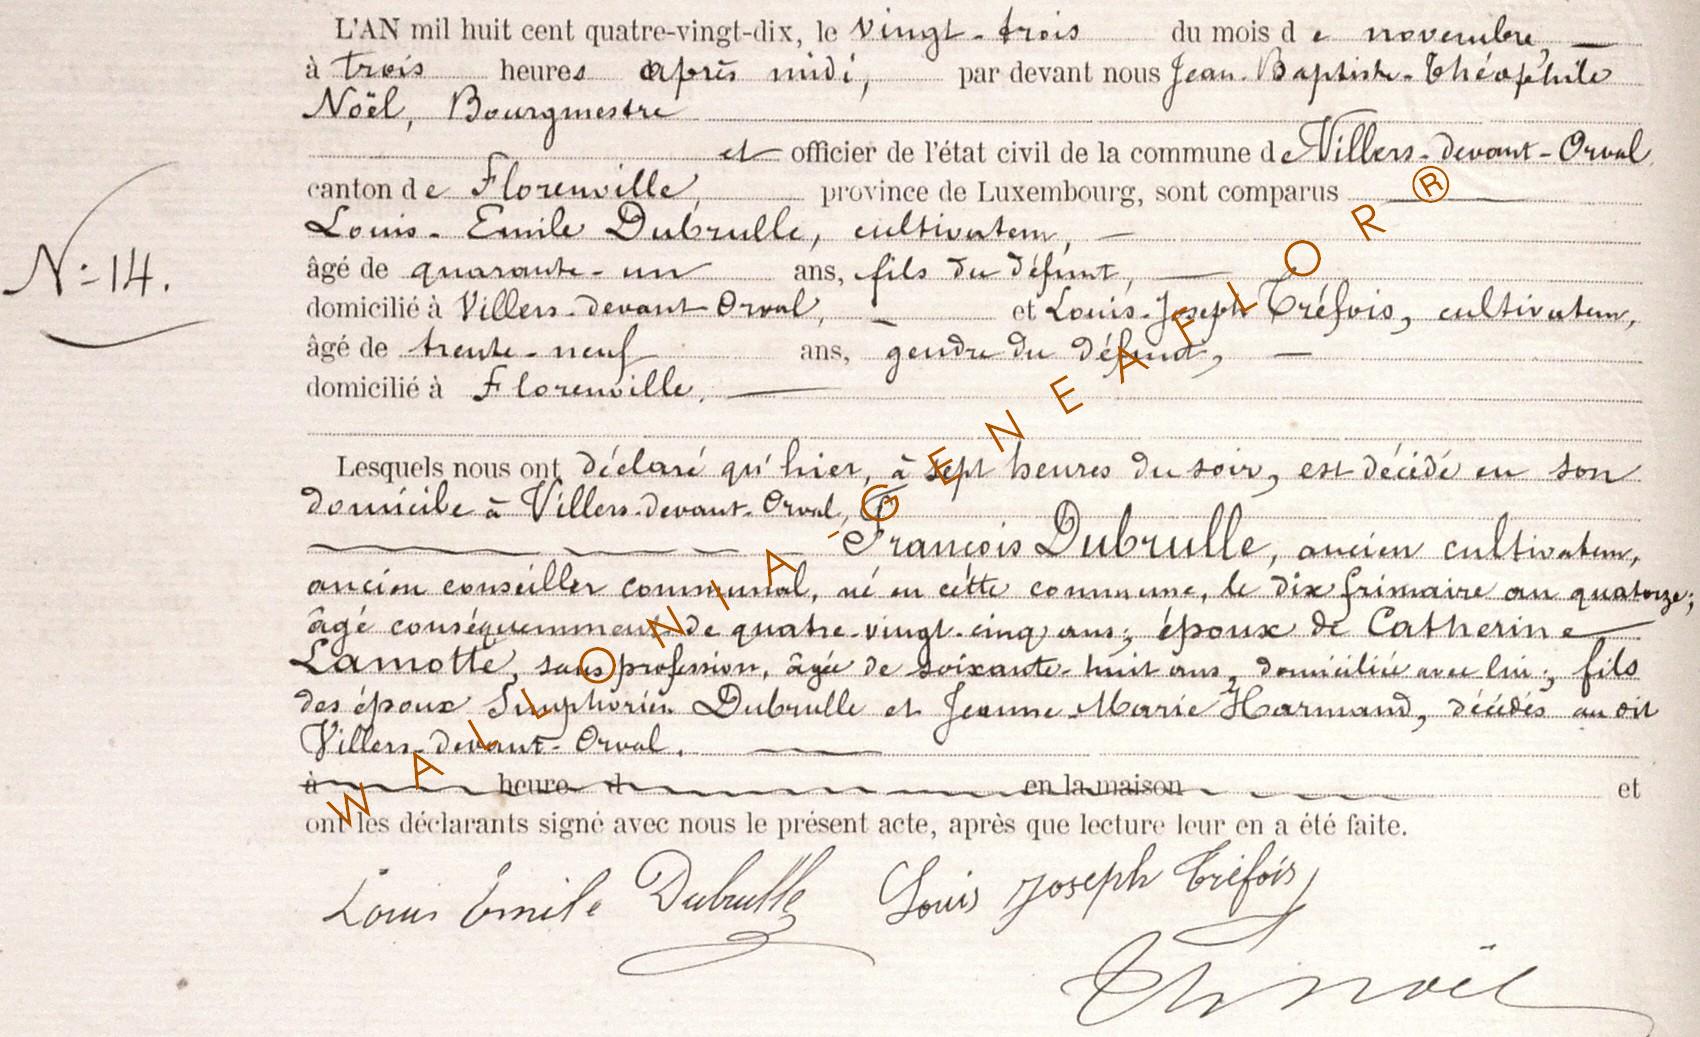 L'AN mil huit cent quatre-vingt-dix, le vingt-trois du mois de novembre,
à trois heures après midi, par devant nous Jean-Baptiste-Théophile
Noël, Bourgmestre
et officier de l'état civil de la commune de Villers-devant-Orval
canton de Florenville, province de Luxembourg, sont comparus
Louis-Emile Dubrulle, cultivateur,
N° 14.
âgé de quarante-un ans, fils du défunt,
domicilié à Villers-devant-Orval, et Louis-Joseph Tréfois, cultivateur,
âgé de trente-neuf ans, gendre du défunt,
domicilié à Florenville,
Lesquels nous ont déclaré qu'hier, à sept heures du soir, est décédé en son
domicile à Villers-devant-Orval,
François Dubrulle, ancien cultivateur,
ancien conseiller communal, né en cette commune, le dix frimaire an quatorze;
âgé conséquemment de quatre-vingt-cinq ans; époux de Catherine
Lamotte, sans profession, âgée de soixante-huit ans, domiciliée avec lui; fils
des époux Simphorien Dubrulle et Jeanne-Marie Harmand, décédés au dit
Villers-devant-Orval.
à heure d en la maison et
ont les déclarants signé avec nous le présent acte, après que lecture leur en a été faite.
Louis Emile Dubrulle Louis Joseph Tréfois
Th Noël
WALLONIA-GENEAFLOR®